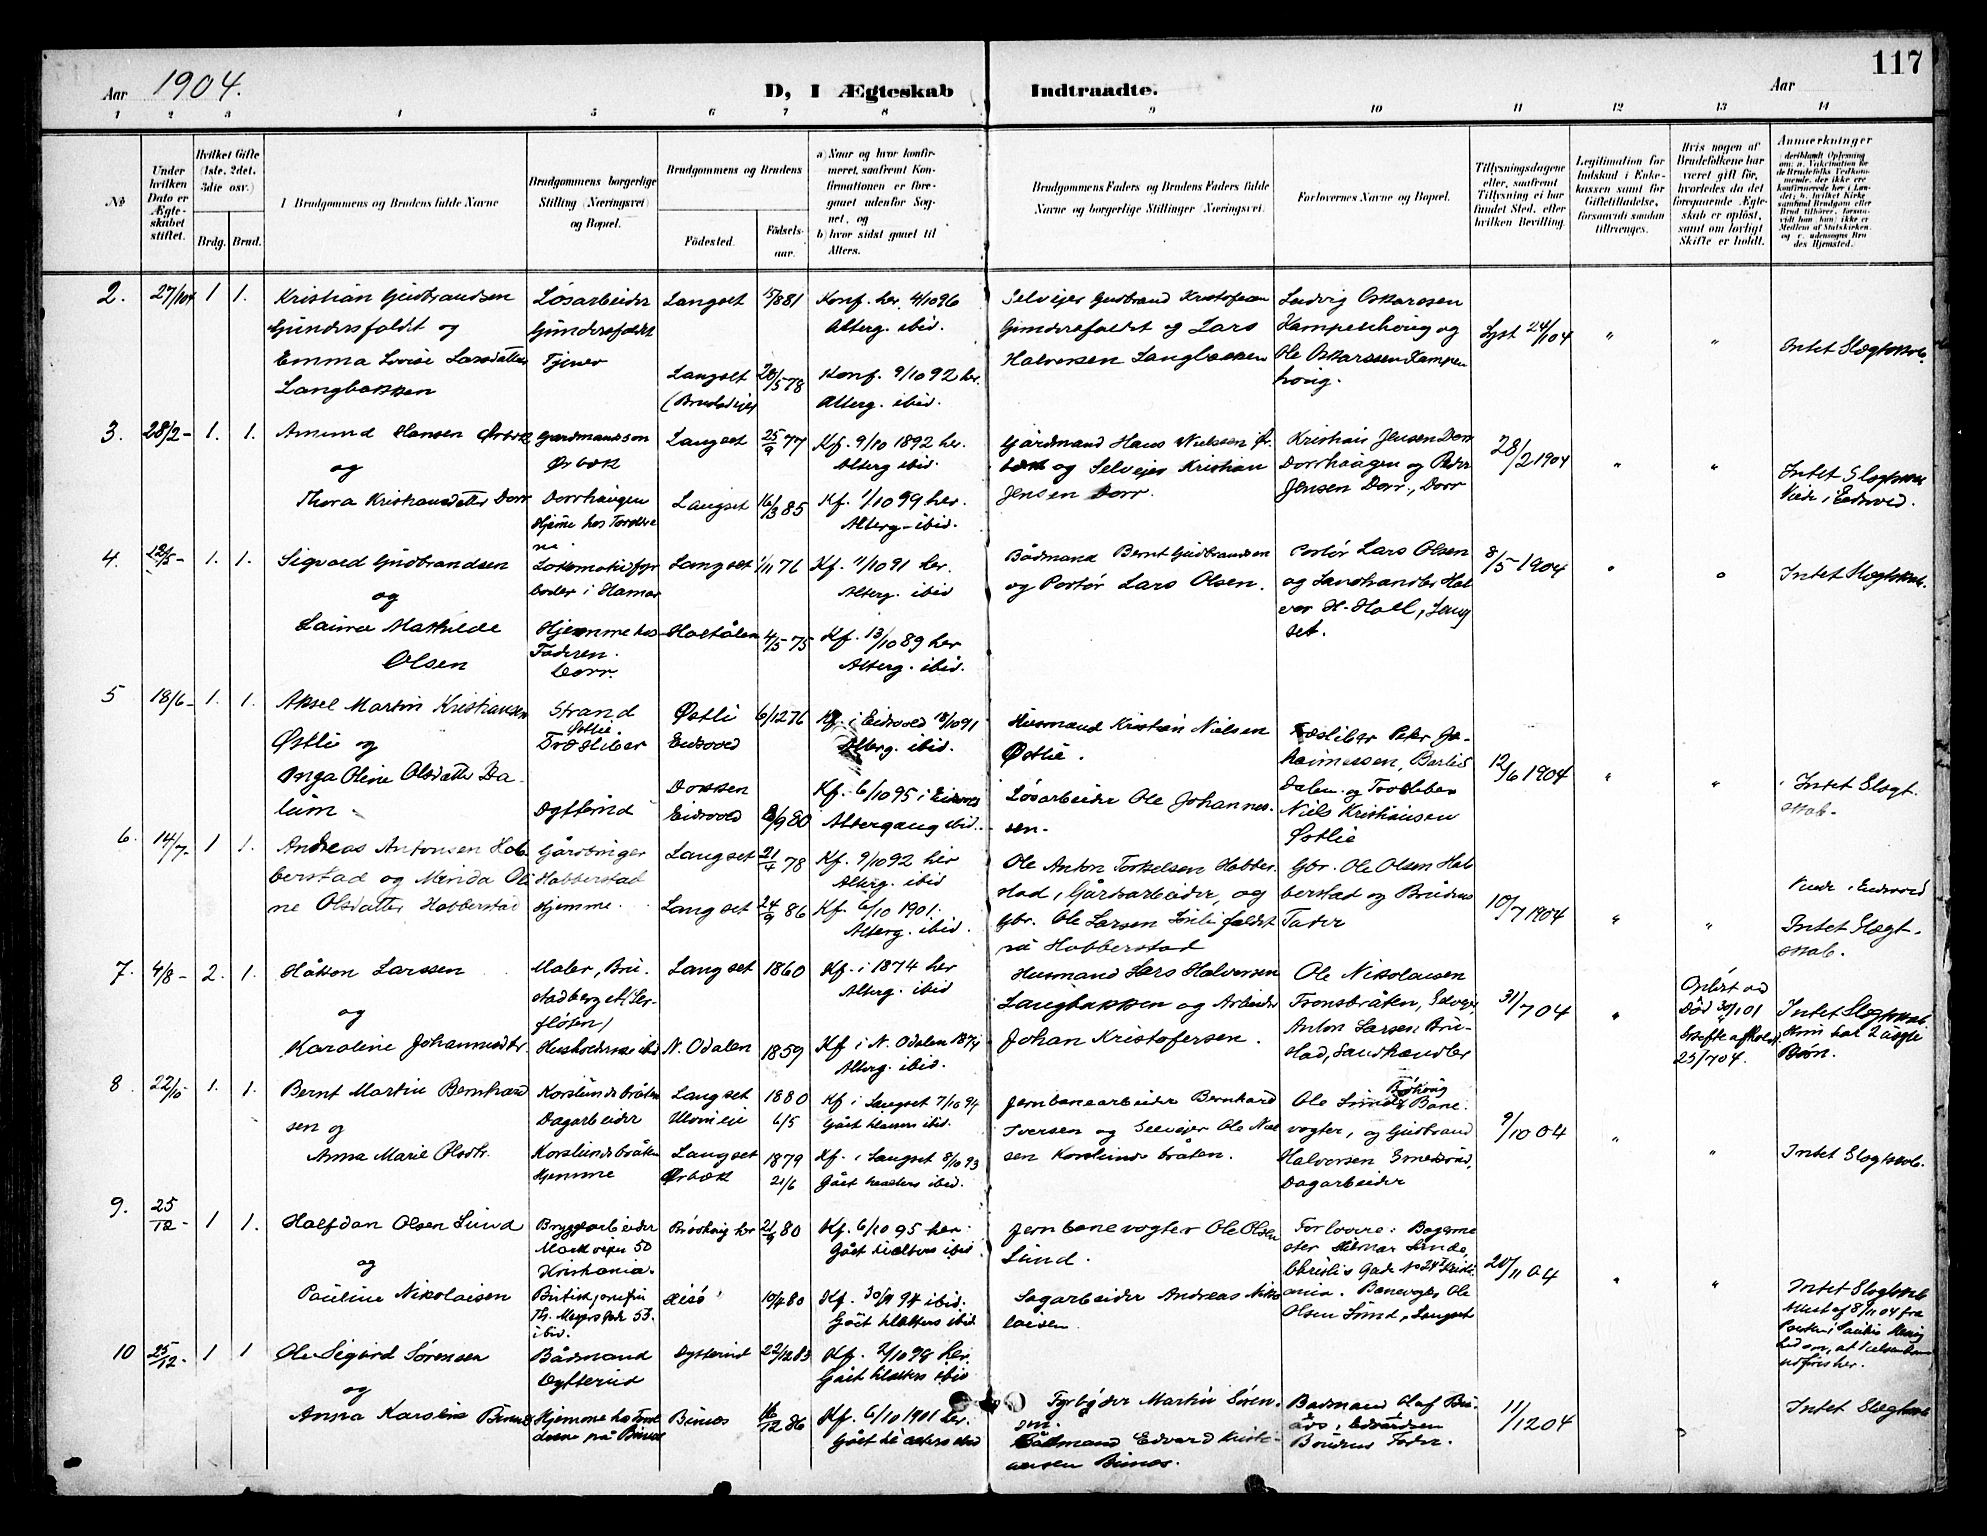 117
Aar 1904.
D, I Ægteskab Indtraadte.
Aar
1 2 3 4 5 6 7 8 9 10 11 12 13 14
No
Under hvilken Dato er Ægteskabet stiftet.
Hvilket Gifte (1ste, 2det, 3die osv.)
Brdg. Brud.
I Brudgommens og Brudens fulde Navne
Brudgommens borgerlige Stilling (Næringsvei) og Bopæl.
Brudgommens og Brudens
Födested. Födselsaar.
a) Naar og hvor konfirmeret, saafremt Konfirmationen er foregaaet udenfor Sognet, og
b) hvor sidst gaaet til Alters.
Brudgommens Faders og Brudens Faders fulde Navne og borgerlige Stillinger (Næringsvei).
Forlovernes Navne og Bopæl.
Tillysningsdagene eller, saafremt Tillysning ei har fundet Sted, efter hvilken Bevilling.
Legitimation for Indskud i Enkekassen samt for Giftetilladelse, forsaavidt saadan tiltrænges.
Hvis nogen af Brudefolkene har været gift før, hvorledes da det foregaaende Ægteskab er oplöst, samt om lovligt Skifte er holdt.
Anmerkninger
2. 27/104 1 1.
Kristian Gudbrandsen
Gundersfaldet og
Emma Lovise Larsdatter
Langbakken
Løsarbeider
Gundersfaldet
Tjener
Langset 15/881
Langset 28/5 78
Konf. her 4/1096
Alterg. ibid.
Konf. 9/1092 her.
Alterg. ibid.
Selveier Gudbrand Kristofersen
Gundersfaldet og Lars
Halversen Langbakken
Ludvig Oskarssen
Kampenhoug og
Ole Oskarssen Kampen
houg.
Lyst 24/104
"
"
Intet Slegtskab.
3. 28/2 - 1. 1.
Amund Hansen Ørbæk
og
Thora Kristiansdatter Dorr
Gaardmandssøn
Ørbæk
Dorrhaugen
Hjeme hos Foreldrene
Langset 25/9 77
Langset 16/3 85
Kf. 9/10 1892 her.
Alterg ibid.
Kf. 1/10 99 her.
Alterg - ibid.
Gårdmand Hans Nielsen Ør
bæk og Selveier Kristian
Jensen Dorr.
Kristian Jensen Dorr
Dorrhaugen og Peder
Jensen Dorr., Dorr
28/2 1904
"
"
Intet Slegtskab
Viede i Eidsvold.
4. 1. 1.
Sigvard Gudbrandsen
og
Laura Mathilde
Olsen
Lokomotivfyr
bøder i Hamar
Hjemme hos
Faderen.
Dorr.
Langset 1/11 76
Holtålen 4/5 - 75
Kf. 4/1091 her.
Alterg. ibid
Kf. 13/1089 her
Alterg. ibid.
Bådmand Bernt Gudbrandsen
og Portør Lars Olsen.
Portør Lars Olsen
og Landhandler Hal
vor H. Holl, Lang
set.
8/5 1904
"
Intet Slegtskab.
5 18/6 - 1. 1.
Aksel Martin Kristiansen
Østli og
Inga Oline Olsdatter Da-
lum
Strand
Østlie
Træsliber
Dytterud
Østli 6/1276
Eidsvold
Dokken
Eidsvold 8/980
Kf. i Eidsvold 18/1091
Alterg. ibid.
Kf. 6/1095 i Eidsvold
Altergang ibid.
Husmand Kristian Nielsen
Østlie.
Løsarbeider Ole Johannes-
sen.
Træsliber Peter Jo-
hannessen, Barlid
Dalen og Træsliber
Niels Kristiansen
Østlie
12/6 1904
"
"
Intet Slegt.
skab.
6. 14/7 - 1 1.
Andreas Antonsen Hob-
berstad og Minda Oli
ne Olsdatter Hobberstad
Gårdbruger
Hobberstad
Hjemme.
Langset 21/4 78
Langset 24/9 86
Kf. 9/1092 her
Alterg. ibid
Kf. 6/10 1901.
Alterg. ibid.
Ole Anton Torkelsen Hobber-
stad, Gårdarbeider, og
Gbr. Ole Larsen Linli faldet
på Hobberstad
Gbr. Ole Olsen Hob-
berstad og Brudens
Fader
10/7 1904
"
"
Viede i Eidsvold
Intet Slegt-
skab.
7. 4/8 - 2. 1.
Håkon Larssen
og
Karoline Johannesdtr
Maler, Bru-
stadberget
Husholderske ibid
Langset 1860
N. Odalen 1859
Kf. i 1874 her
Alterg. ibid
Kf. i N. Odalen 1874
Alterg. ibid.
Husmand Lars Halversen
Langbakken og Arbeider
Johan Kristofersen.
Ole Nikolaisen
Tronsbråten, Selveier,
Anton Larsen Bru-
stad, Landhandler
31/704
"
Opløst ved
Død 30/101
Skifte afholdt
25/704.
Intet Slegtskab
Kom. har 2 uægte
Børn.
8. 22/10 - 1. 1.
Bernt Martin Bernhard
sen og
Anna Marie Olsdtr.
Korslundsbråten
Dagarbeider
Korslundsbråten
Hjemme
Langset 1880
6/5
Langset 1879
Ørbæk 21/6
Kf i Langset 7/1094
Gået til alters ibid.
Kf. i Langset 8/1093
Gået til alters ibid.
Jernbanearbeider Bernhard
Iversen og Selveier Ole Niel
sen Korslundsbråten.
Brøhoug
Ole Lund, Bane-
vogter, og Gudbrand
Halversen Smedsrud,
Dagarbeider
9/1004
"
"
Intet Slegtskab.
9. 25/12 - 1 1.
Halfdan Olsen Lund
og
Pauline Nikolaisen
Bryggearbeider
Markveien 50
Kristiania.
Butikjomfru
Th. Meyers Gade 53.
ibid.
Brøshoug her 21/9 80
10/480
Kf. 6/10 95 her.
Gået til alters ibid.
Kf. 30/9 94 ibid.
Gået til alters ibid
Jernbanevogter Ole Olsen
Lund.
Sagarbeider Andreas Niko
laisen.
Forlovere: Bagerme
ster Hilmar Lunde,
Christies Gade No 24 Kristi
ania. Banevogter Ole
Olsen Lund, Langset
20/1104
"
"
Intet Slegtskab
Attest af 8/1104 fra
10 25/12 - 1 1
Ole Sigurd Sørensen
og
Anna Karoline Binæs
Bådmand
Dytterud
Hjemme hos Foræl
drene på Binæs
Dytterud 22/1283
Binæs 16/12 86
Kf. 2/1098 her.
Gået til alters ibid
Kf. 6/10 1901 her.
Gået til alters ibid
Fyrbøder Martin Søren-
sen.
Bådmand Edvard Kristi-
ansen Binæs.
Baadmand Olaf Bi-
næs, Edvardsen
Brudens Fader.
11/1204
Intet Slegtskab